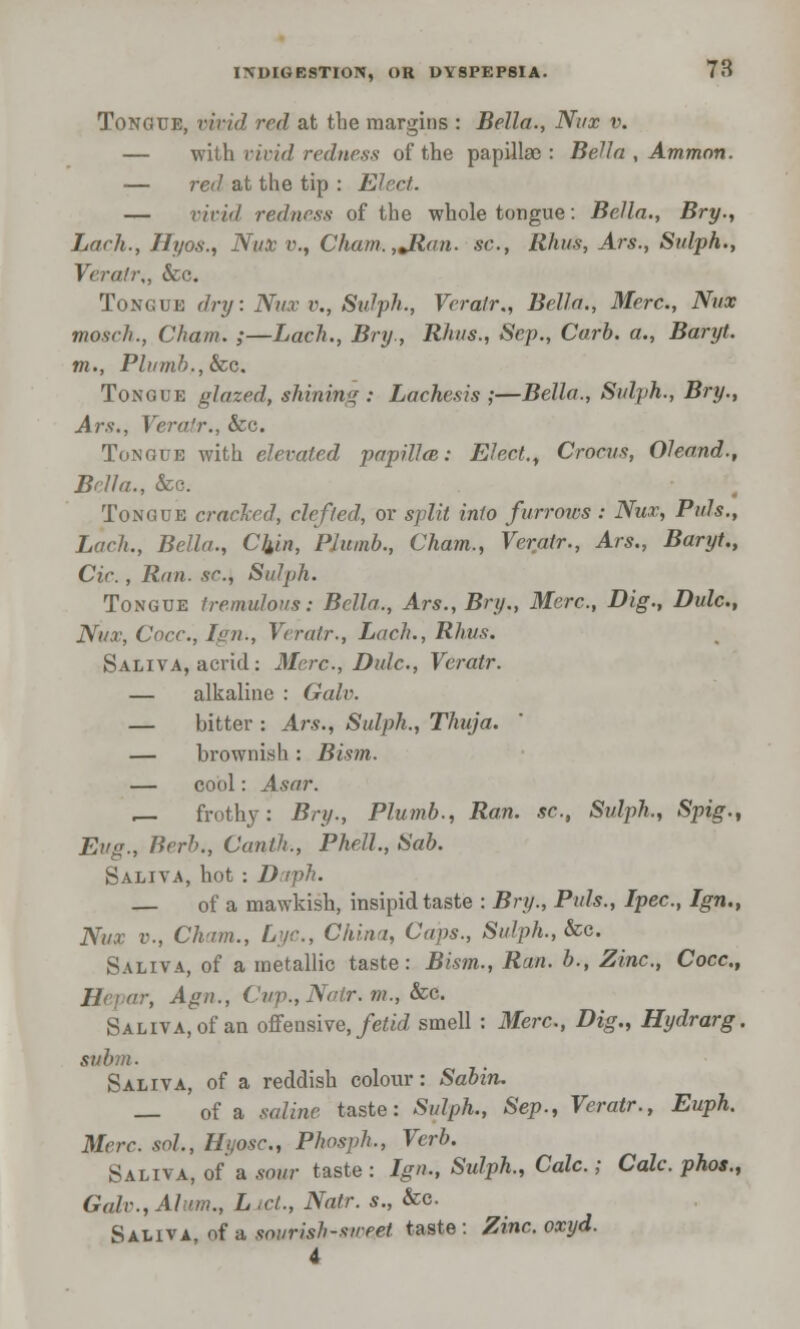 INDIGESTION, OR DYSPEPSIA. 73
Tongue, vivid red at the margins : Bella., Nux v.
— with vivid redness of the papillæ : Bella , Ammon.
— red at the tip : Elect.
— vivid redness of the whole tongue : Bella., Bry.,
Lach., Hyos., Nux v., Cham., Ran. sc., Rhus, Ars., Sulph.,
Veratr., &c.
Tongue dry : Nux v., Sulph., Veratr., Bella., Merc., Nux
mosch., Cham. ;—Lach., Bry., Rhus., Sep., Carb. a., Baryt.
m., Plumb., &c.
Tongue glazed, shining : Lachesis ;—Bella., Sulph., Bry.,
Ars., Veratr., &c.
Tongue with elevated papillæ : Elect., Crocus, Oleand.,
Bella., &c.
Tongue cracked, clefted, or split into furrows : Nux, Puls.,
Lach., Bella., Chin, Plumb., Cham., Veratr., Ars., Baryt.,
Cic., Ran. sc., Sulph.
Tongue tremulous : Bella., Ars., Bry., Merc., Dig., Dulc.,
Nux, Cocc., Ign., Veratr., Lach., Rhus.
Saliva, acrid : Merc., Dulc., Veratr.
— alkaline : Galv.
— bitter : Ars., Sulph., Thuja.
— brownish : Bism.
— cool : Asar.
— frothy : Bry., Plumb., Ran. sc., Sulph., Spig.,
Eug., Berb., Canth., Phell., Sab.
Saliva, hot : Daph.
— of a mawkish, insipid taste : Bry., Puls., Ipec., Ign.,
Nux v., Cham., Lyc., China, Caps., Sulph., &c.
Saliva, of a metallic taste : Bism., Ran. b., Zinc., Cocc.,
Hepar, Agn., Cup., Natr. m., &c.
Saliva, of an offensive, fetid smell : Merc., Dig., Hydrarg.
subm.
Saliva, of a reddish colour : Sabin.
— of a saline taste : Sulph., Sep., Veratr., Euph.
Merc. sol., Hyosc., Phosph., Verb.
Saliva, of a sour taste : Ign., Sulph., Calc. ; Calc. phos.,
Galv., Alum., Lact., Natr. s., &c.
Saliva, of a sourish-sweet taste : Zinc. oxyd.
4